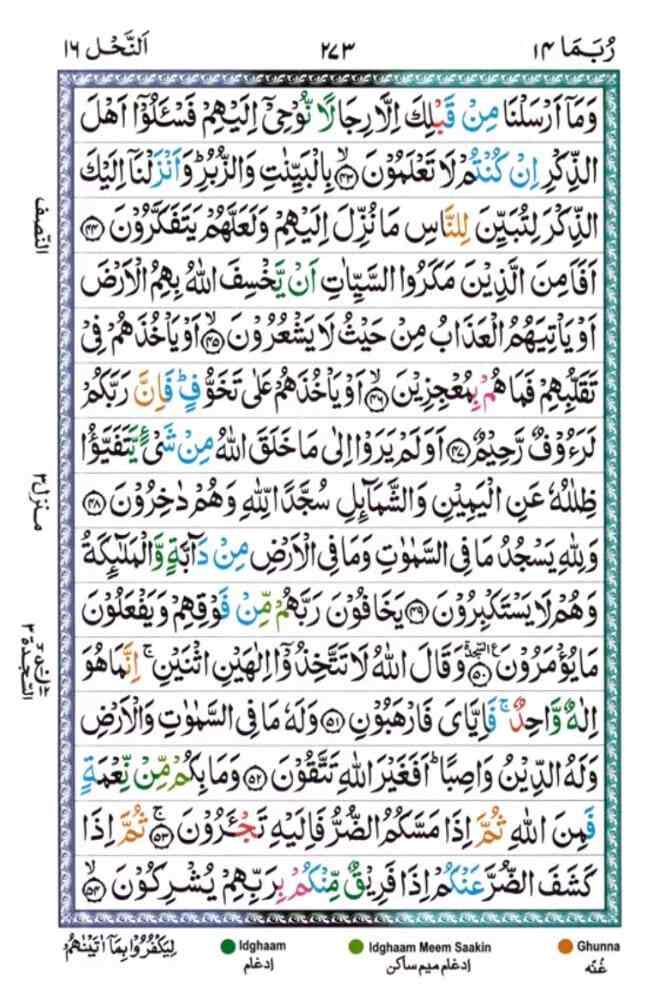 رُبَمَا ١٤ ٢٧٣ اَلنَّحْل ١٦
وَمَاۤ اَرْسَلْنَا مِنْ قَبْلِكَ اِلَّا رِجَالًا نُّوْحِيْۤ اِلَيْهِمْ فَسْـَٔلُوْۤا اَهْلَ
الذِّكْرِ اِنْ كُنْتُمْ لَا تَعْلَمُوْنَ ۙ﴿٤٣﴾ بِالْبَيِّنٰتِ وَالزُّبُرِ ؕ وَاَنْزَلْنَاۤ اِلَيْكَ
الذِّكْرَ لِتُبَيِّنَ لِلنَّاسِ مَا نُزِّلَ اِلَيْهِمْ وَلَعَلَّهُمْ يَتَفَكَّرُوْنَ ﴿٤٤﴾
اَفَاَمِنَ الَّذِيْنَ مَكَرُوا السَّيِّاٰتِ اَنْ يَّخْسِفَ اللّٰهُ بِهِمُ الْاَرْضَ
اَوْ يَاْتِيَهُمُ الْعَذَابُ مِنْ حَيْثُ لَا يَشْعُرُوْنَ ۙ﴿٤٥﴾ اَوْ يَاْخُذَهُمْ فِيْ
تَقَلُّبِهِمْ فَمَا هُمْ بِمُعْجِزِيْنَ ۙ﴿٤٦﴾ اَوْ يَاْخُذَهُمْ عَلٰى تَخَوُّفٍ ؕ فَاِنَّ رَبَّكُمْ
لَرَءُوْفٌ رَّحِيْمٌ ﴿٤٧﴾ اَوَلَمْ يَرَوْا اِلٰى مَا خَلَقَ اللّٰهُ مِنْ شَيْءٍ يَّتَفَيَّؤُا
ظِلٰلُهٗ عَنِ الْيَمِيْنِ وَالشَّمَآئِلِ سُجَّدًا لِّلّٰهِ وَهُمْ دٰخِرُوْنَ ﴿٤٨﴾
وَلِلّٰهِ يَسْجُدُ مَا فِي السَّمٰوٰتِ وَمَا فِي الْاَرْضِ مِنْ دَآبَّةٍ وَّالْمَلٰٓئِكَةُ
وَهُمْ لَا يَسْتَكْبِرُوْنَ ﴿٤٩﴾ يَخَافُوْنَ رَبَّهُمْ مِّنْ فَوْقِهِمْ وَيَفْعَلُوْنَ
مَا يُؤْمَرُوْنَ ﴿٥٠﴾ وَقَالَ اللّٰهُ لَا تَتَّخِذُوْۤا اِلٰهَيْنِ اثْنَيْنِ ۚ اِنَّمَا هُوَ
اِلٰهٌ وَّاحِدٌ ۚ فَاِيَّايَ فَارْهَبُوْنِ ﴿٥١﴾ وَلَهٗ مَا فِي السَّمٰوٰتِ وَالْاَرْضِ
وَلَهُ الدِّيْنُ وَاصِبًا ؕ اَفَغَيْرَ اللّٰهِ تَتَّقُوْنَ ﴿٥٢﴾ وَمَا بِكُمْ مِّنْ نِّعْمَةٍ
فَمِنَ اللّٰهِ ثُمَّ اِذَا مَسَّكُمُ الضُّرُّ فَاِلَيْهِ تَجْـَٔرُوْنَ ۚ﴿٥٣﴾ ثُمَّ اِذَا
كَشَفَ الضُّرَّ عَنْكُمْ اِذَا فَرِيْقٌ مِّنْكُمْ بِرَبِّهِمْ يُشْرِكُوْنَ ۙ﴿٥٤﴾
النّصف
منزل ٣
السّجدة ٣
لِيَكْفُرُوْا بِمَاۤ اٰتَيْنٰهُمْ
Idghaam
Idghaam Meem Saakin
Ghunna
إدغام
إدغام میم ساکن
غُنّه